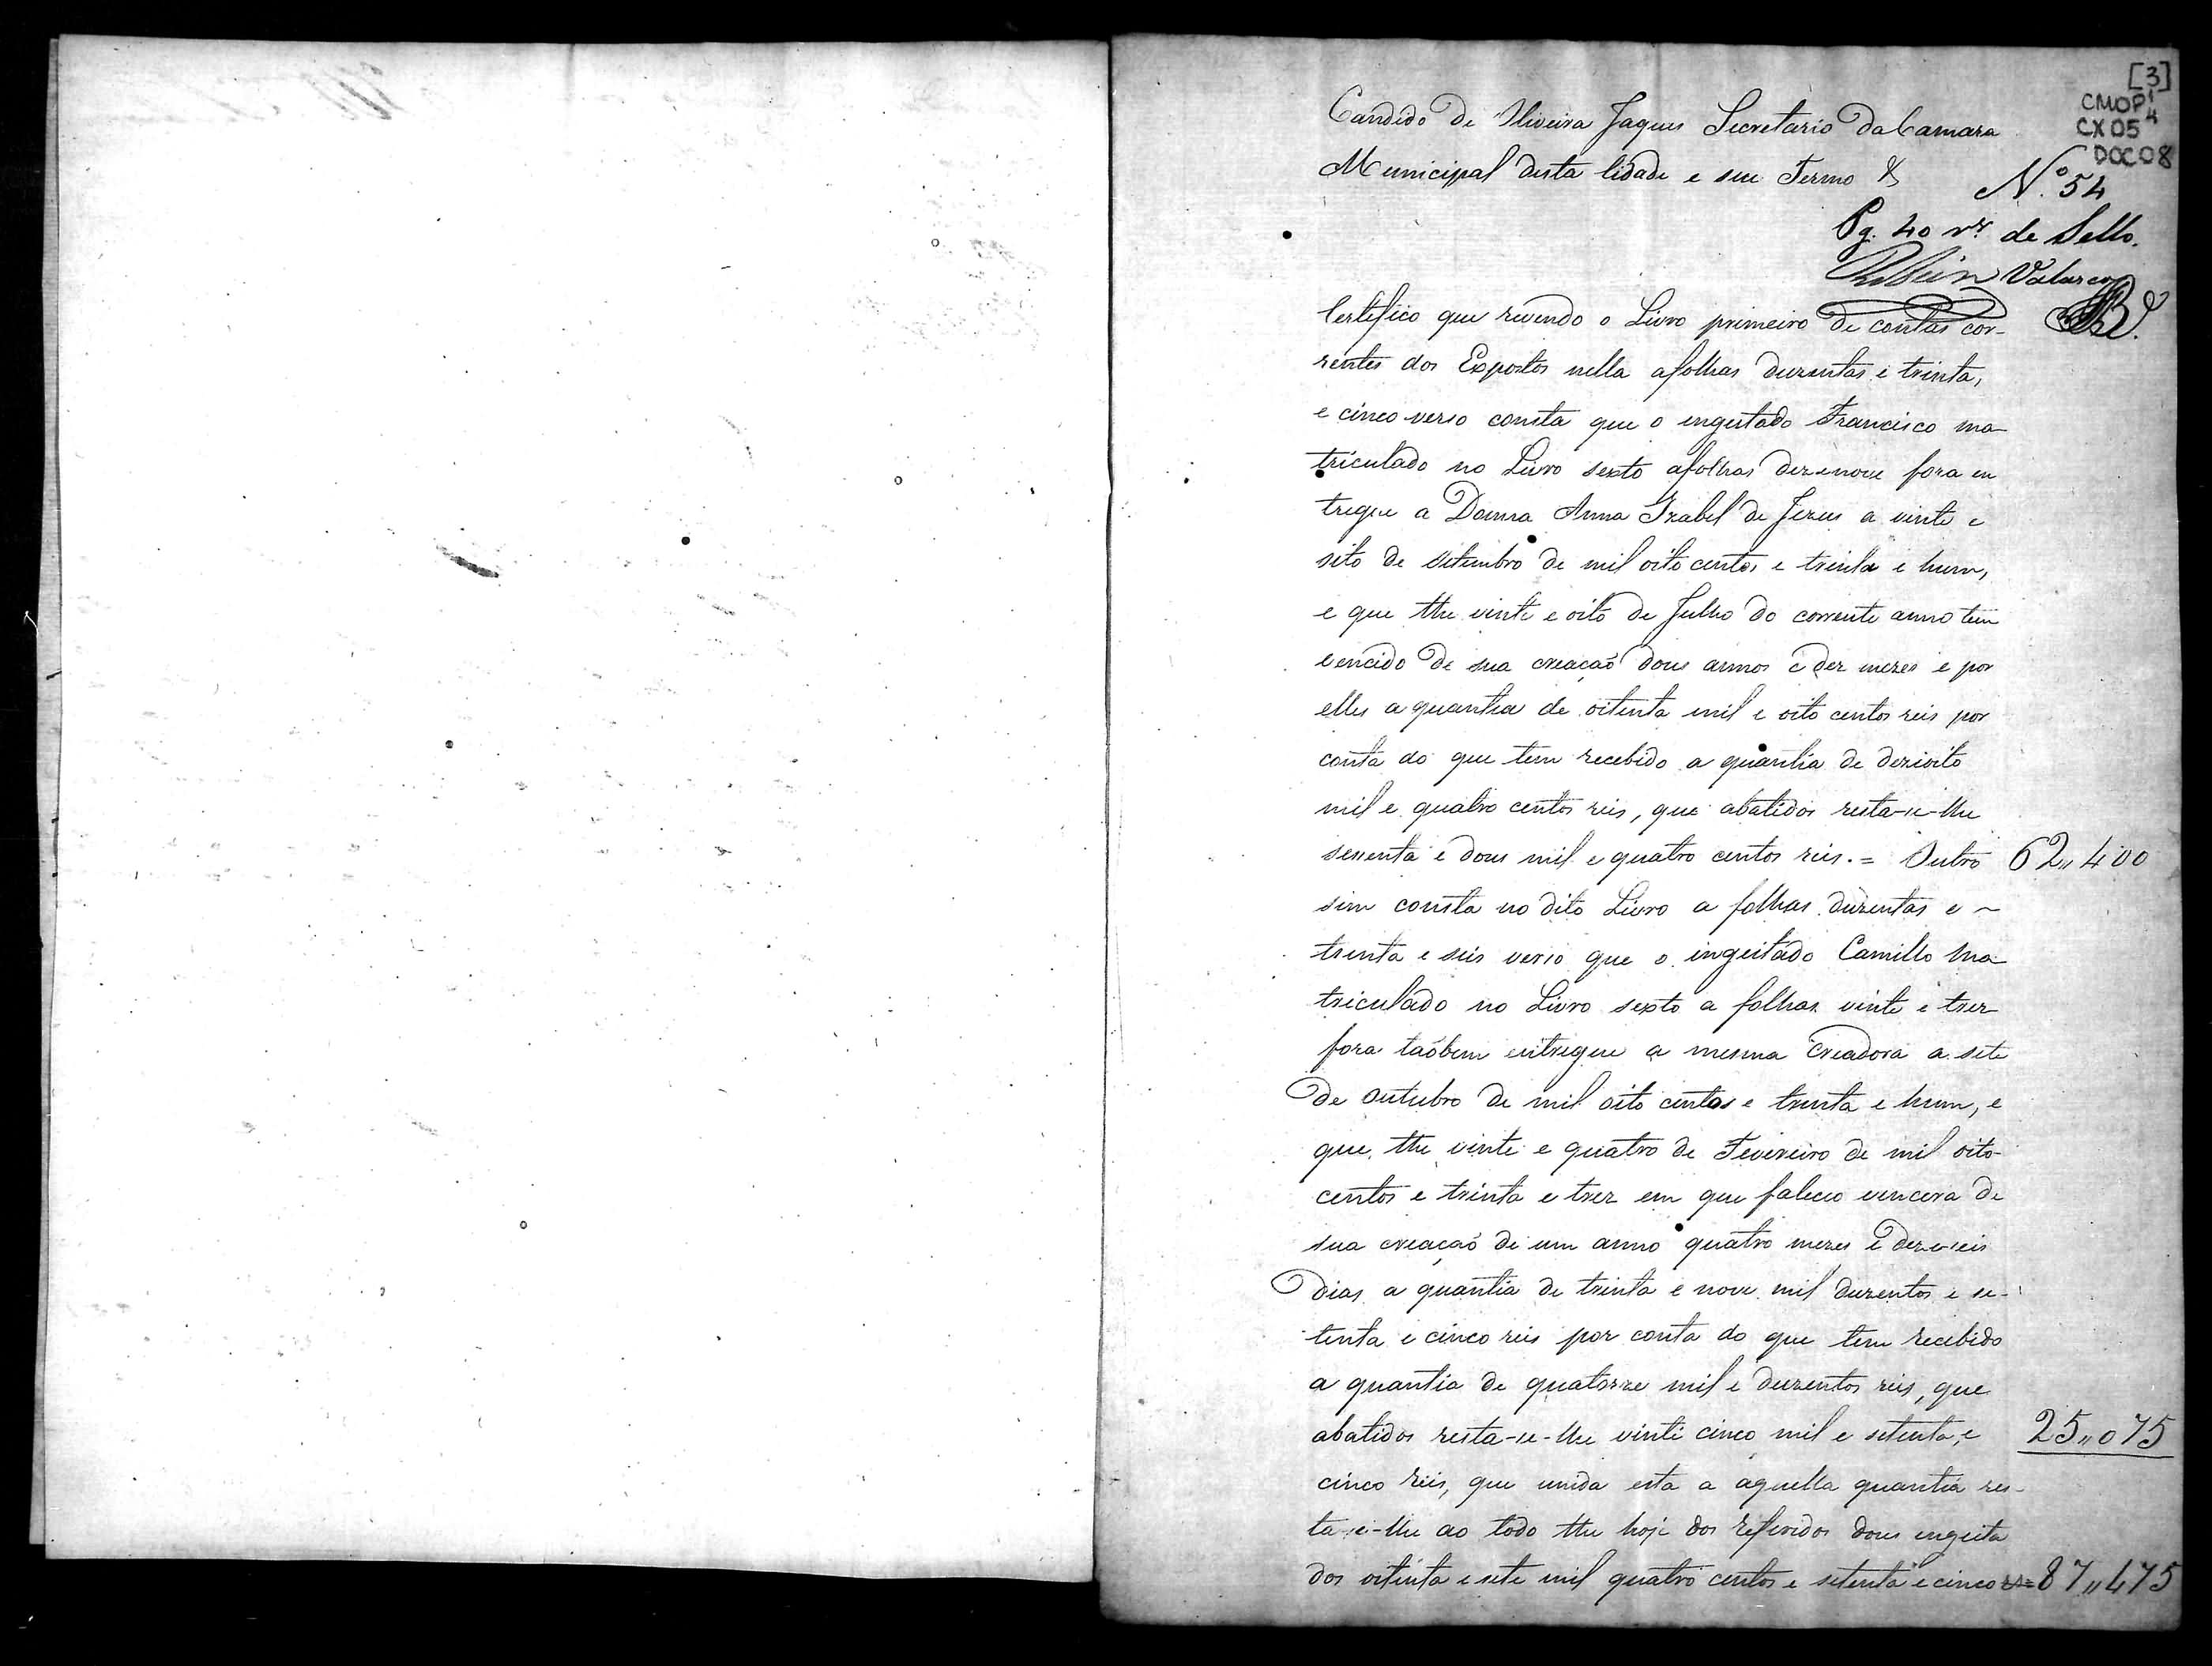 [3]
CMOP 1 4
CX 05
DOC 08
Candido de Oliveira Jaques Secretario da Camara
Municipal desta Cidade e seu Termo &
Nº. 54
Pg. 40 rs de Sello.
Vasconcos
Certefico que revendo o Livro primeiro de contas cor-
rentes dos Expostos nella afolhas duzentas e trinta,
e cinco verso consta que o engeitado Francisco ma-
triculado no Livro sexto afolhas dezenove fora en
tregue a Donna Anna Izabel de Jezus a vinte e
sete de Setembro de mil oito centos e trinta e hum,
e que the vinte e oito de Julho do corrente anno tem
vencido de sua creaçaõ dous annos e dez mezes e por
elles a quantia de oitenta mil e oito centos reis por
conta do que tem recebido a quantia de dezioito
mil e quatro centos reis, que abatidos resta-se-lhe
sesenta e dous mil e quatro centos reis. = Outro 62,,400
sim consta no dito Livro a folhas duzentas e ~
trenta e seis verso que o ingeitado Camillo ma
triculado no Livro sexto a folhas vinte e trez
fora taõbem entregue a mesma Creadora a sete
de Outubro de mil oito centos e trinta e hum, e
que the vinte e quatro de Fevereiro de mil oito-
centos e trinta e trez em que faleceo vencera de
sua creaçaõ de um anno quatro mezes e dezeseis
dias a quantia de trinta e nove mil duzentos e se-
tenta e cinco reis por conta do que tem recebido
a quantia de quatorze mil e duzentos reis, que
abatidos resta-se-lhe vinte cinco mil e setenta, e 25,,075
cinco reis, que unida esta a aquella quantia res-
ta-se-lhe ao todo the hoje dos referidos dous engeita
dos oitenta e sete mil quatro centos e setenta e cinco rs= 87,,475